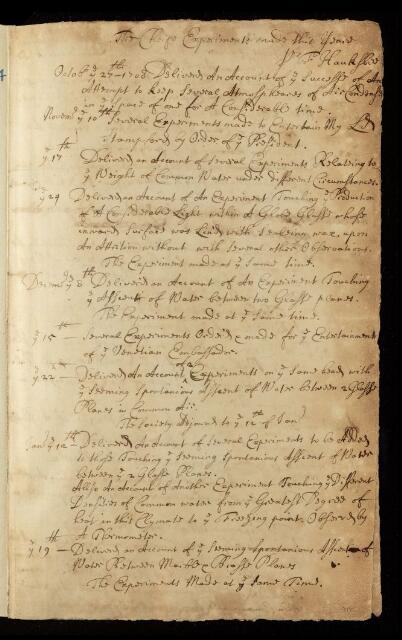 The Cheife Experiments made this Yeare
pr F Hauksbee
Octob: ye 27th 1708 Deliver'd An Account of ye Successe of An
Attempt to keep Several Atmospheares of Air Condens'd
in ye space of one for A Considerable time.
Novem: ye 10th Several Experiments made to Entertain My Ld
Stamford by Order of ye President.
ye 17 Deliver'd an Account of Several Experiments Relateing to
ye Weight of Common Water under different Circumstances.
ye 24 Deliver'd an Account of An Experiment Touching ye Production
of A Considerable Light within A Globe Glass whose
inward Surface was Lin'd with Sealeing wax, upon
An Attrition without with Several other Observations.
The Experiment made at ye Same time.
Decemb: ye 8th Deliver'd an Account of An Experiment Touching
ye Assent of Water between two Glass planes.
The Experiment made at ye Same time.
ye 15th — Several Experiments Order'd & made for ye Entertainment
of ye Venetian Embassador.
ye 22 — Deliver'd An Account of 2 Experiments on ye Same head with
ye Seeming Spontanious Assent of Water between 2 Glass
Planes in Common Air.
The Society Adjornd to ye 12th of Janr
Janr ye 12th — Deliver'd An Account of Several Experiments to be Added
to those Touching ye Seeming Spontanious Assent of Water
between ye 2 Glass Planes.
Allso An Account of Another Experiment Touching ye Different
Densities of Common water from ye Greatest Degree of
heat in this Clymate to ye Freezing point Observ'd by
A Thermometer.
ye 19th — Deliver'd an Account of ye Seeming Spontanious Assent of
Water Between Marble & Brasse Planes
The Experiments Made at ye Same Time.